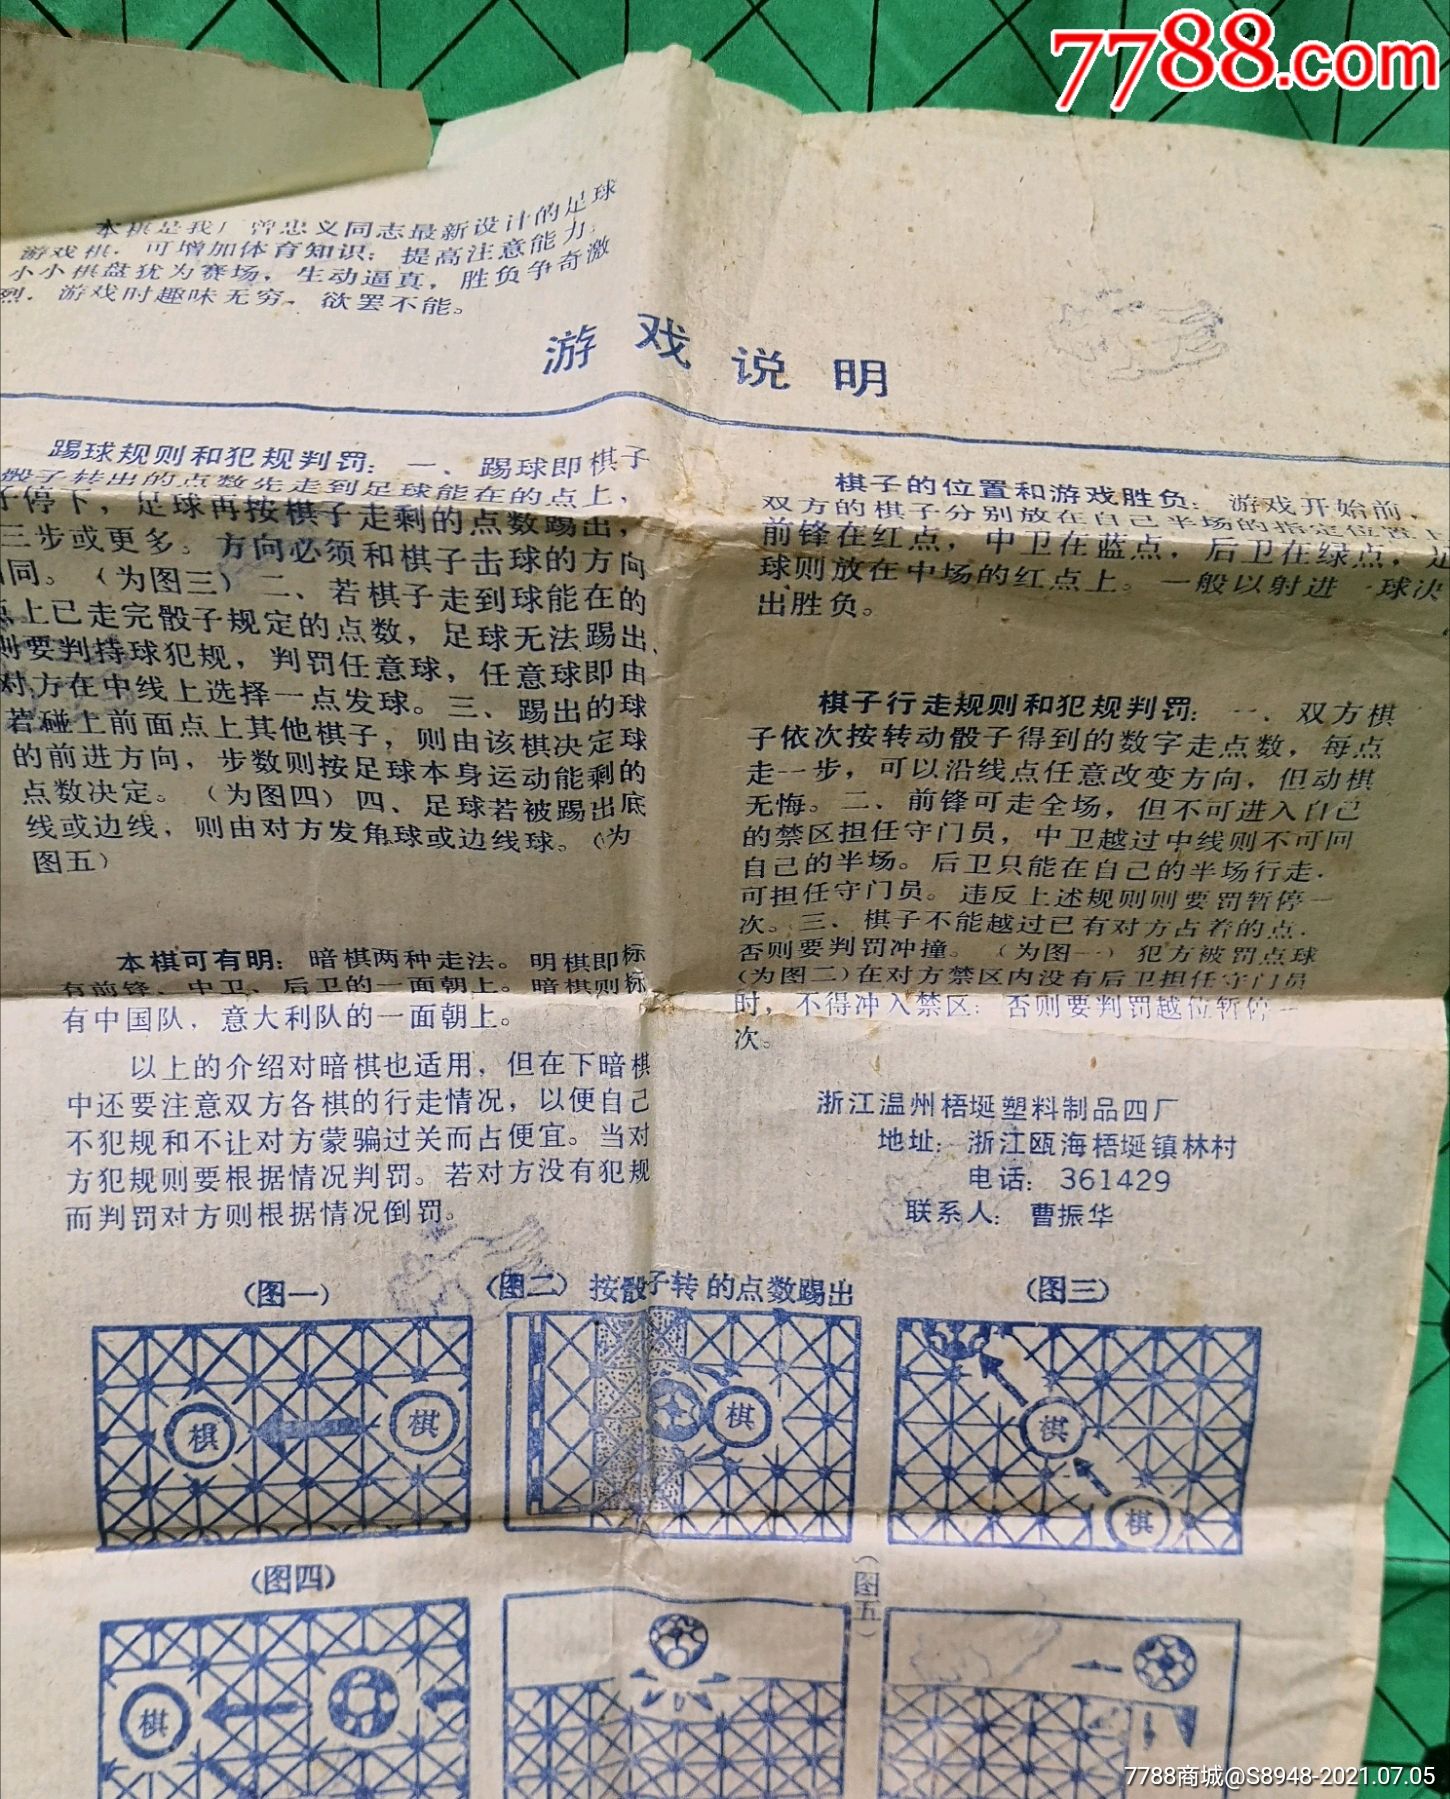 7788.com
本棋是我厂曾忠义同志最新设计的足球
游戏棋，可增加体育知识；提高注意能力；
小小棋盘犹为赛场，生动逼真，胜负争奇激
烈．游戏时趣味无穷，欲罢不能。
游戏说明
踢球规则和犯规判罚：一、踢球即棋子
骰子转出的点数先走到足球能在的点上，
子停下，足球再按棋子走剩的点数踢出，
三步或更多。方向必须和棋子击球的方向
同。（为图三）二、若棋子走到球能在的
点上已走完骰子规定的点数，足球无法踢出，
则要判持球犯规，判罚任意球，任意球即由
对方在中线上选择一点发球。三、踢出的球
若碰上前面点上其他棋子，则由该棋决定球
的前进方向，步数则按足球本身运动能剩的
点数决定。（为图四）四、足球若被踢出底
线或边线，则由对方发角球或边线球。（为
图五）
本棋可有明：暗棋两种走法。明棋即标
有前锋、中卫、后卫的一面朝上。暗棋则标
有中国队，意大利队的一面朝上。
以上的介绍对暗棋也适用，但在下暗棋
中还要注意双方各棋的行走情况，以便自己
不犯规和不让对方蒙骗过关而占便宜。当对
方犯规则要根据情况判罚。若对方没有犯规
而判罚对方则根据情况倒罚。
棋子的位置和游戏胜负：游戏开始前，
双方的棋子分别放在自己半场的指定位置上
前锋在红点，中卫在蓝点，后卫在绿点，足
球则放在中场的红点上。一般以射进一球决
出胜负。
棋子行走规则和犯规判罚：一、双方棋
子依次按转动骰子得到的数字走点数，每点
走一步，可以沿线点任意改变方向，但动棋
无悔。二、前锋可走全场，但不可进入自己
的禁区担任守门员，中卫越过中线则不可回
自己的半场。后卫只能在自己的半场行走．
可担任守门员。违反上述规则则要罚暂停一
次。三、棋子不能越过已有对方占着的点．
否则要判罚冲撞。（为图一）犯方被罚点球
（为图二）在对方禁区内没有后卫担任守门员
时，不得冲入禁区；否则要判罚越位暂停一
次。
浙江温州梧埏塑料制品四厂
地址：浙江瓯海梧埏镇林村
电话：361429
联系人：曹振华
（图一）
（图二）按骰子转的点数踢出
（图三）
棋
棋
棋
棋
棋
（图四）
（图五）
棋
7788商城@S8948-2021.07.05